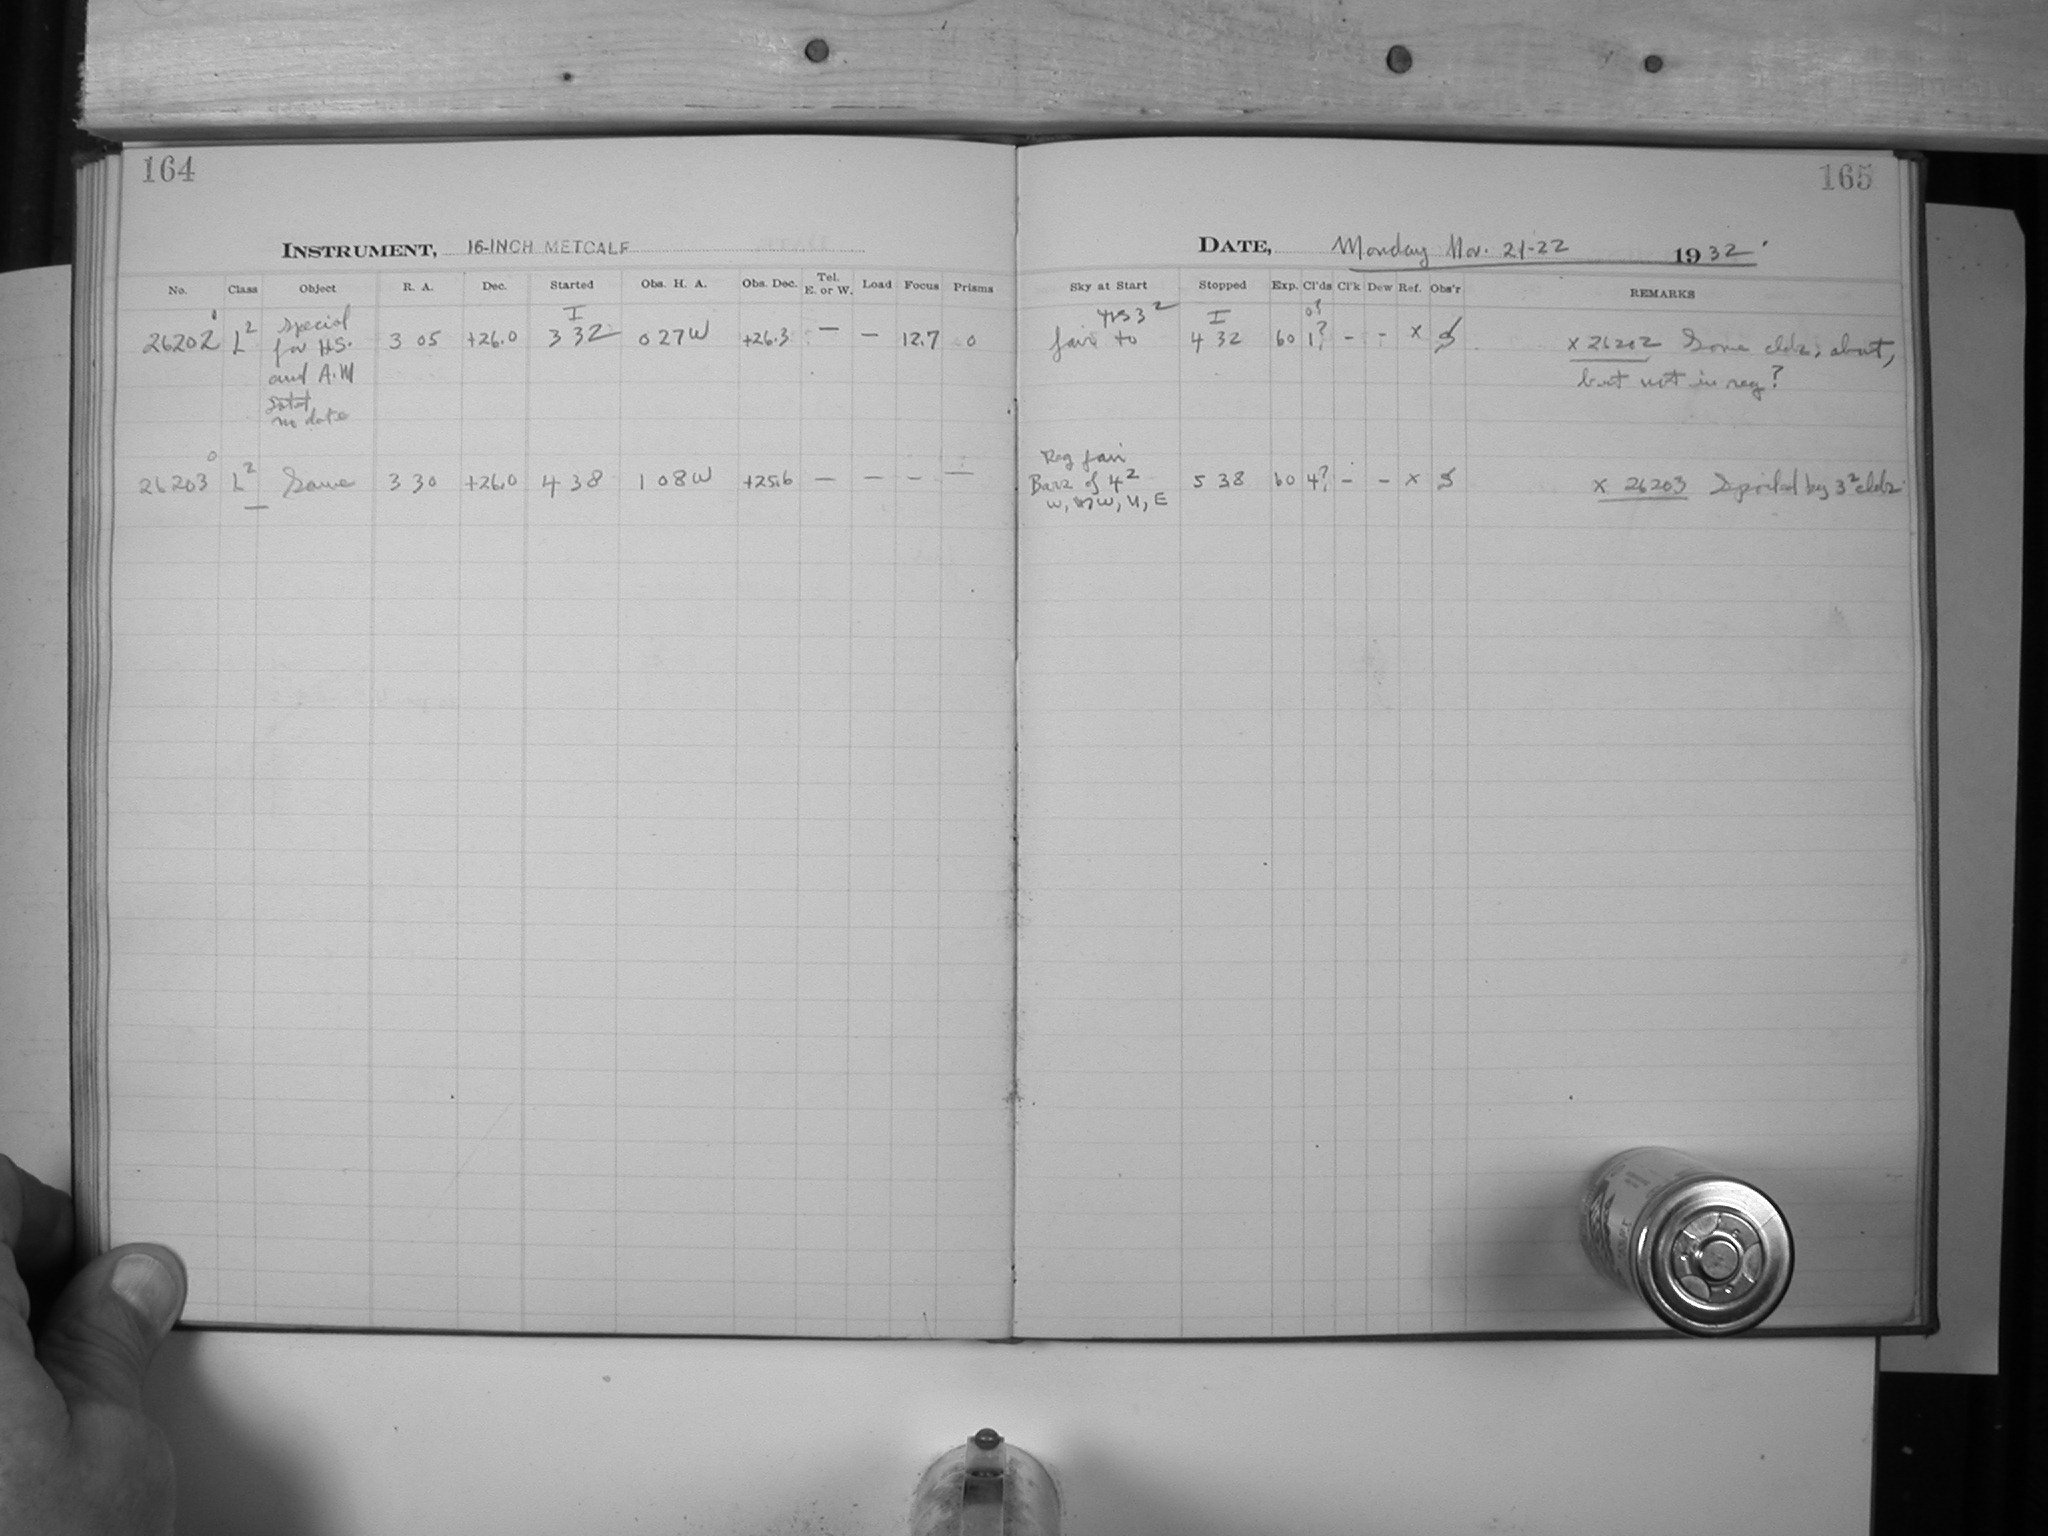 164
165
INSTRUMENT, 16-INCH METCALF
DATE, Monday Nov. 21-22 1932
No. Class Object R. A. Dec. Started Obs. H. A. Obs. Dec. Tel. E. or W. Load Focus Prisms
Sky at Start Stopped Exp. Cl'ds Cl'k Dew Ref. Obs'r REMARKS
26202 L² special for H.S. and A.W no date 3 05 +26.0 I 3 32 0 27 W +26.3 — — 12.7 0
fair to 3² I 4 32 60 1? - - x x 26202 Some clds. about,
but not in reg?
26203 L² Same 3 30 +26.0 4 38 1 08 W +25.6 — — - —
Reg fair
Bars of 4² 5 38 60 4? - - x x 26203 Spoiled by 3² clds.
W, NW, N, E